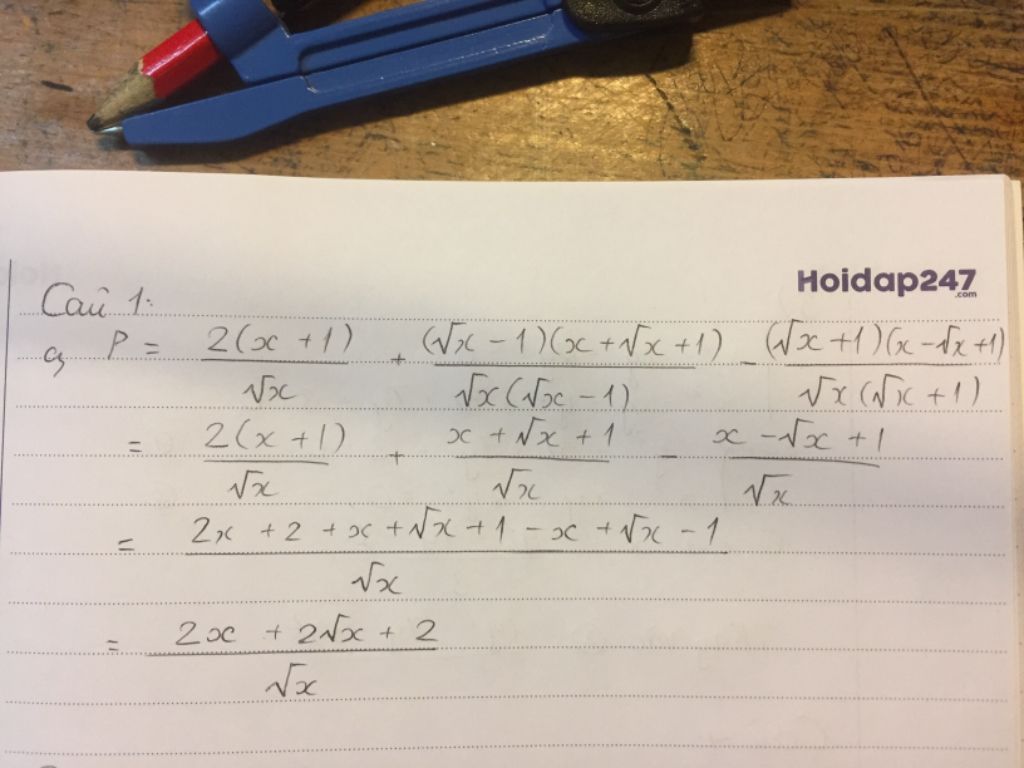 Hoidap247
.com
Câu 1:
a, P = 2(x + 1) / √x + (√x - 1)(x + √x + 1) / √x(√x - 1) - (√x + 1)(x - √x + 1) / √x(√x + 1)
= 2(x + 1) / √x + x + √x + 1 / √x - x - √x + 1 / √x
= 2x + 2 + x + √x + 1 - x + √x - 1 / √x
= 2x + 2√x + 2 / √x